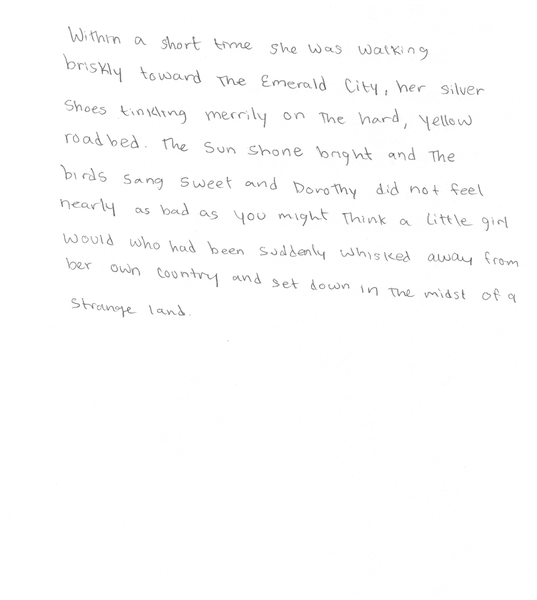 Within a short time she was walking
briskly toward The Emerald City, her silver
Shoes tinkling merrily on The hard, yellow
roadbed. The Sun shone bright and The
birds sang sweet and Dorothy did not feel
nearly as bad as you might Think a little girl
would who had been suddenly whisked away from
her own country and set down in The midst of a
strange land.